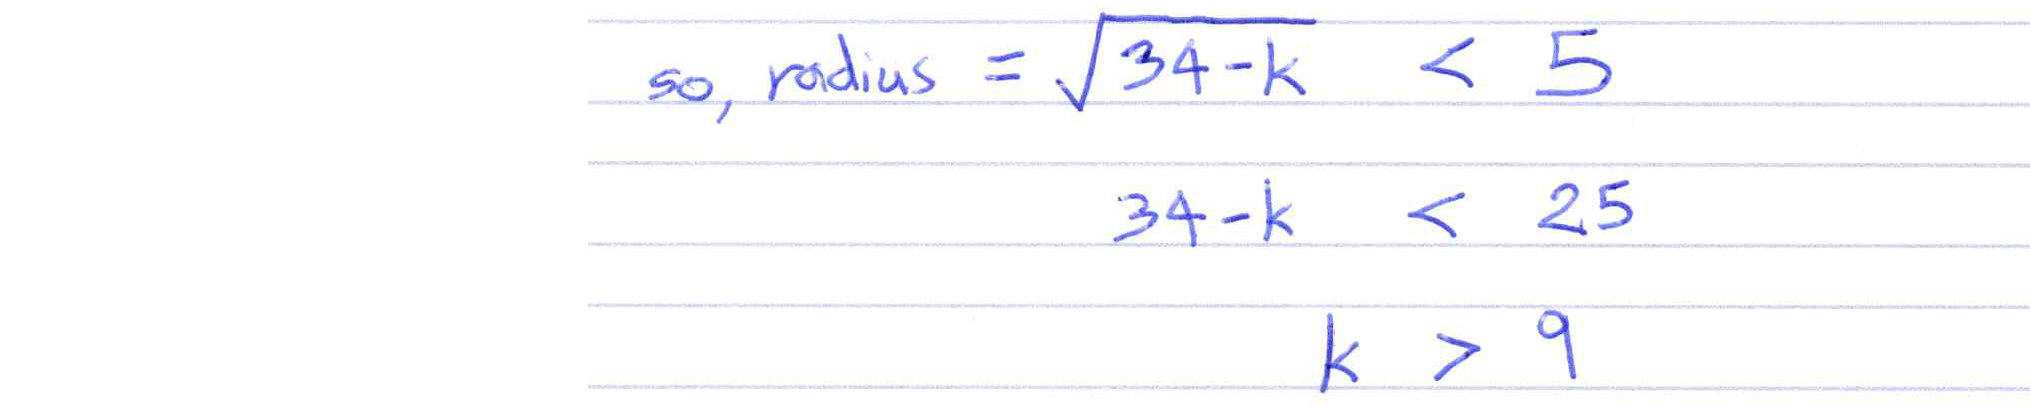 so, radius = √34-k < 5
34-k < 25
k > 9